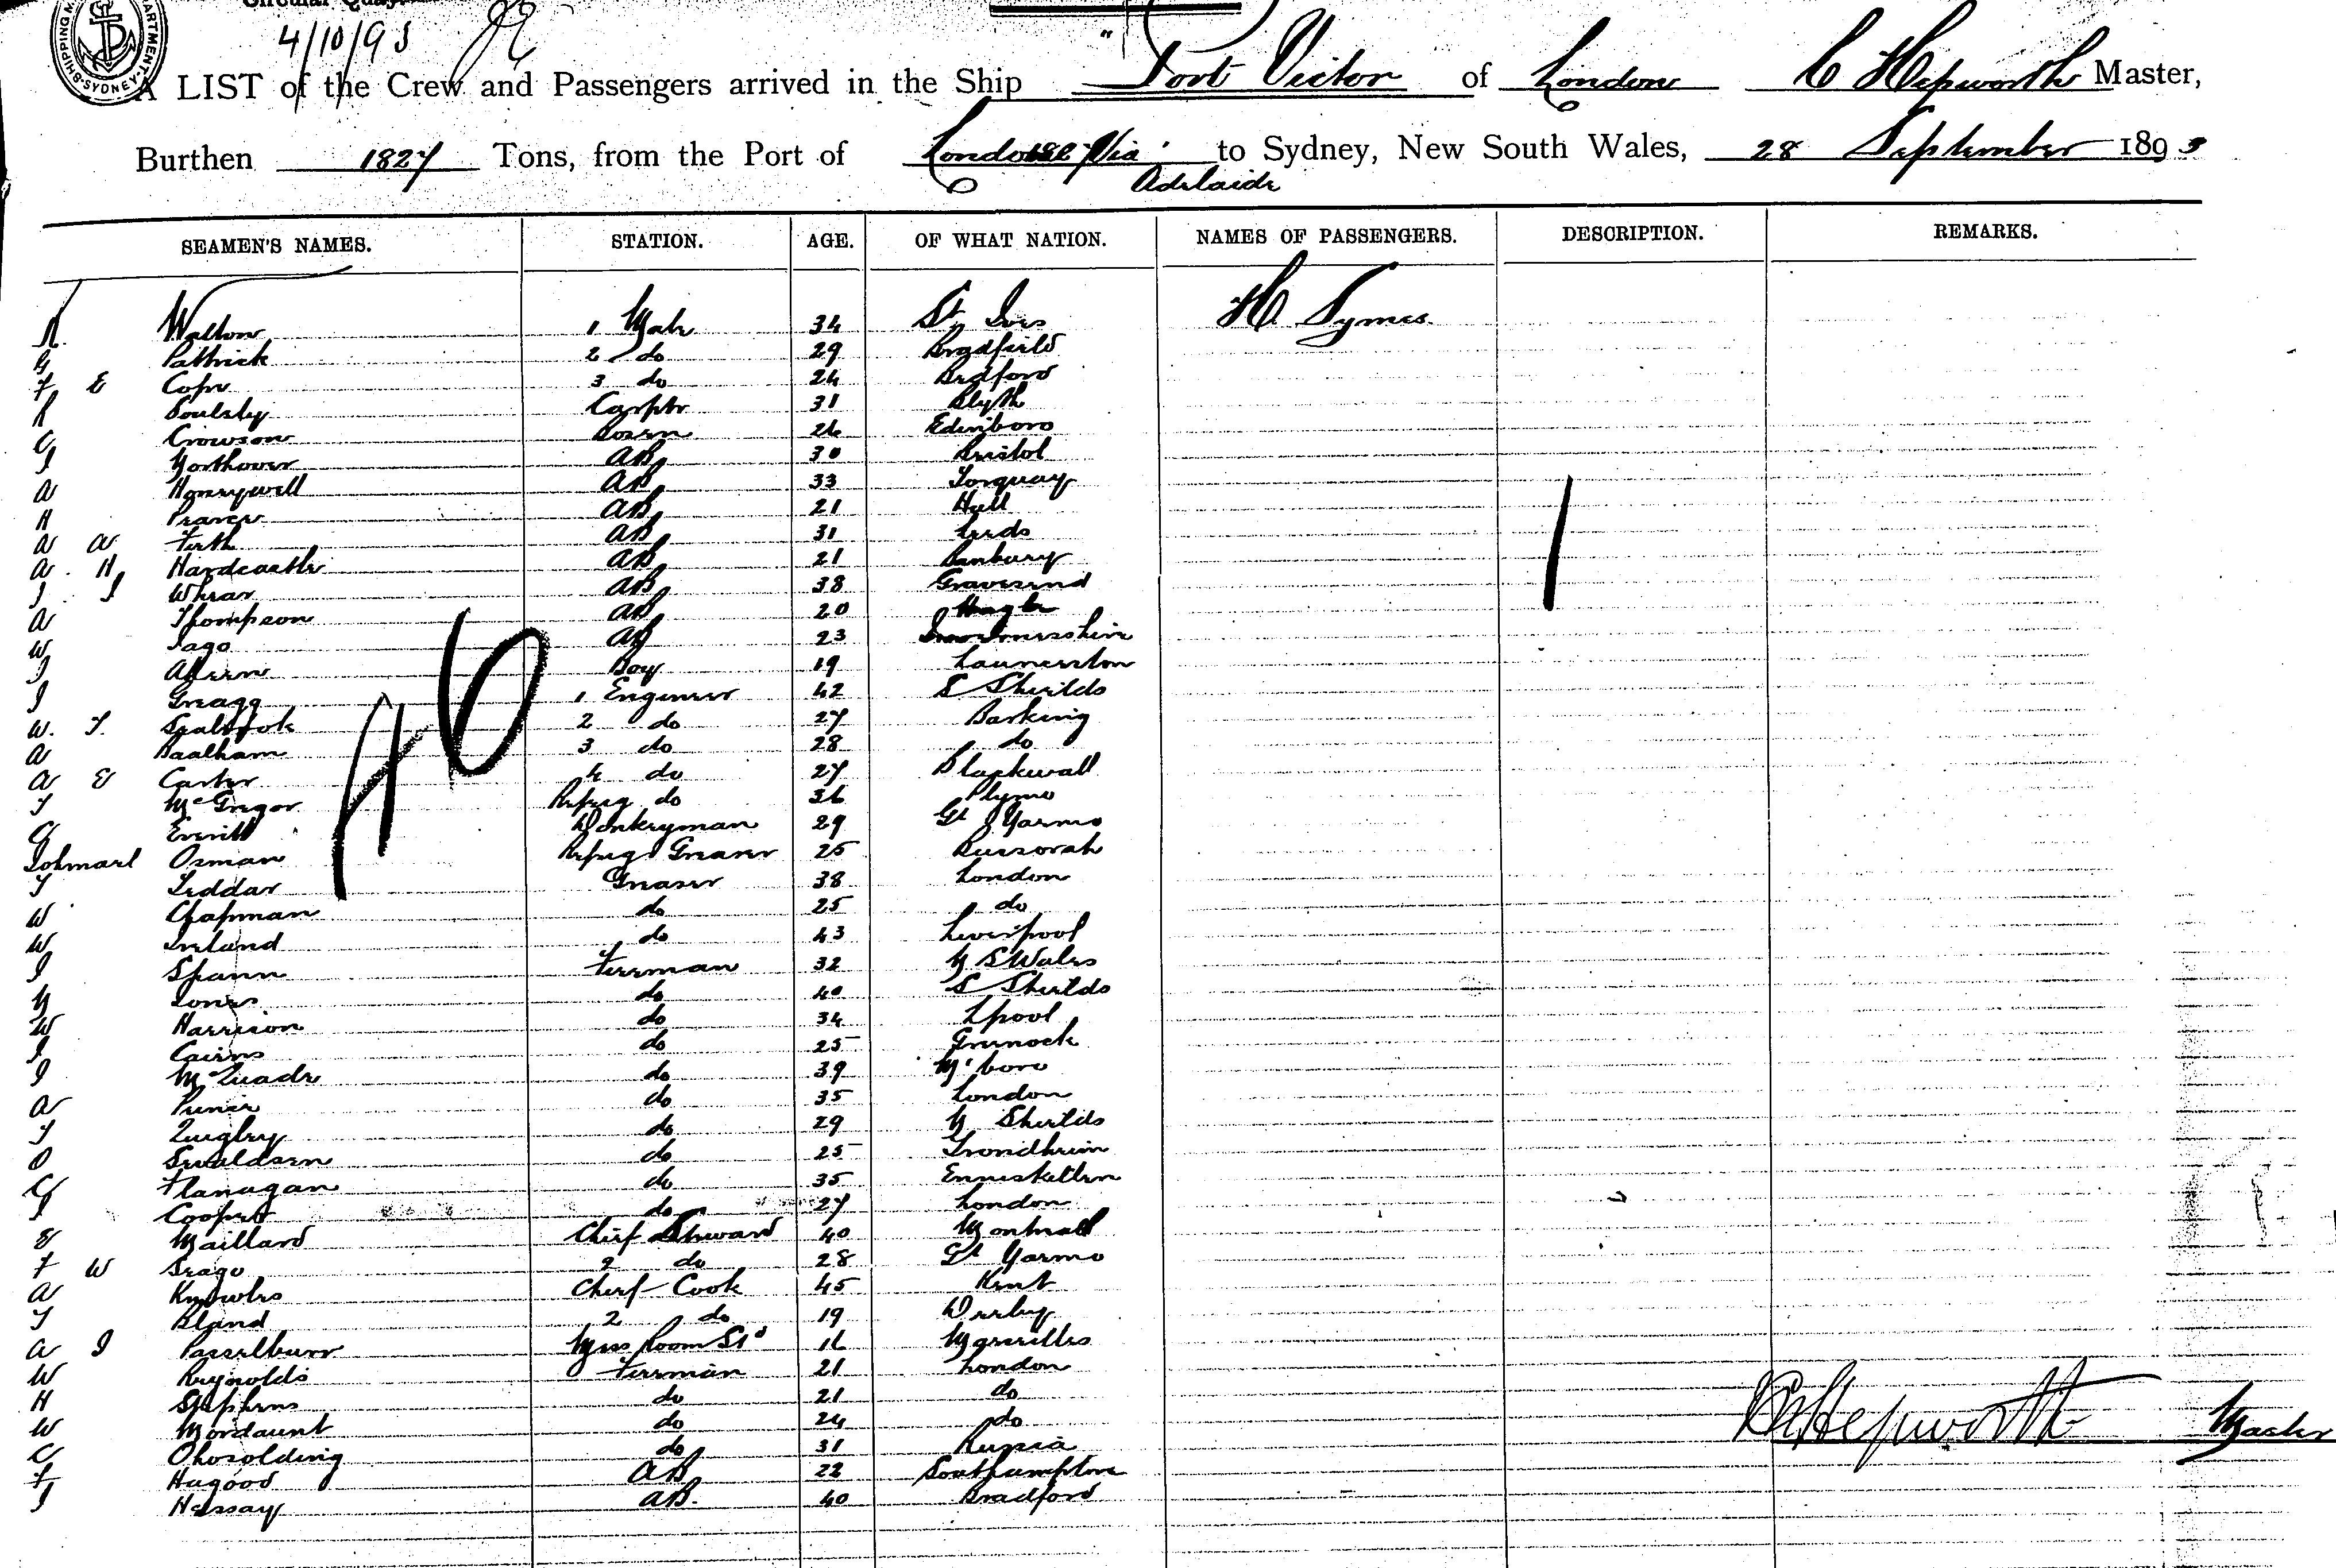 Circular Quay.
4/10/93
SHIPPING M DEPARTMENT SYDNEY
A LIST of the Crew and Passengers arrived in the Ship "Port Victor of London C Hepworth Master,
Burthen 1827 Tons, from the Port of London Via to Sydney, New South Wales, 28 September 1893
Adelaide
SEAMEN'S NAMES. STATION. AGE. OF WHAT NATION. NAMES OF PASSENGERS. DESCRIPTION. REMARKS.
Walton 1 Mate 34 St Ives H. Symes
G Pattrick 2 do 29 Bradfield
F E Cope 3 do 24 Bedford
Soulsby Carptr 31 Blyth
C Crowson Bosen 26 Edinboro
J Northover AB 30 Bristol
A Honeywell AB 33 Torquay
H AB 21 Hull
A W Firth AB 31 Leeds
A. H Hardcastle AB 21 Banbury
J. J Whear AB 38 Gravesend
A Thompson AB 20
W Jago AB 23
J Ahern Boy 19 Launceston
J Gregg 1 Engineer 42 S Sheilds
W. T. Sealbrook 2 do 27 Barking
A Baalham 3 do 28 do
A E Carter 4 do 27 Blackwall
T McGregor Refreg do 36 Plymo
G Everitt Donkeyman 29 Gt Yarmo
Osman Refreg Greaser 25 Bussorah
T Leddar Greaser 38 London
W Chapman do 25 do
W Ireland do 43 Liverpool
J Spann Fireman 32 N S Wales
N Jones do 40 S Sheilds
W Harrison do 34 Lpool
J Cairns do 25 Greenock
J McQuade do 39 M'boro
A do 35 London
T Quigley do 29 N Sheilds
O Swaldsen do 25 Trondheim
G Flanagan do 35 Enniskellen
J Cooper do 27 London
E Maillard Chief Steward 40 Montreal
F W Seago 2 do 28 Gt Yarmo
A Knowles Chief Cook 45 Kent
T Bland 2 do 19 Derby
A J Messroom Std 16 Marseilles
W Reynolds Fireman 21 London
H Stephens do 21 do
W Mordaunt do 24 do
C Ohosolding do 31 Russia
F Hagood AB 22 Southampton
J Hessay AB. 40 Bradford
C Hepworth Master